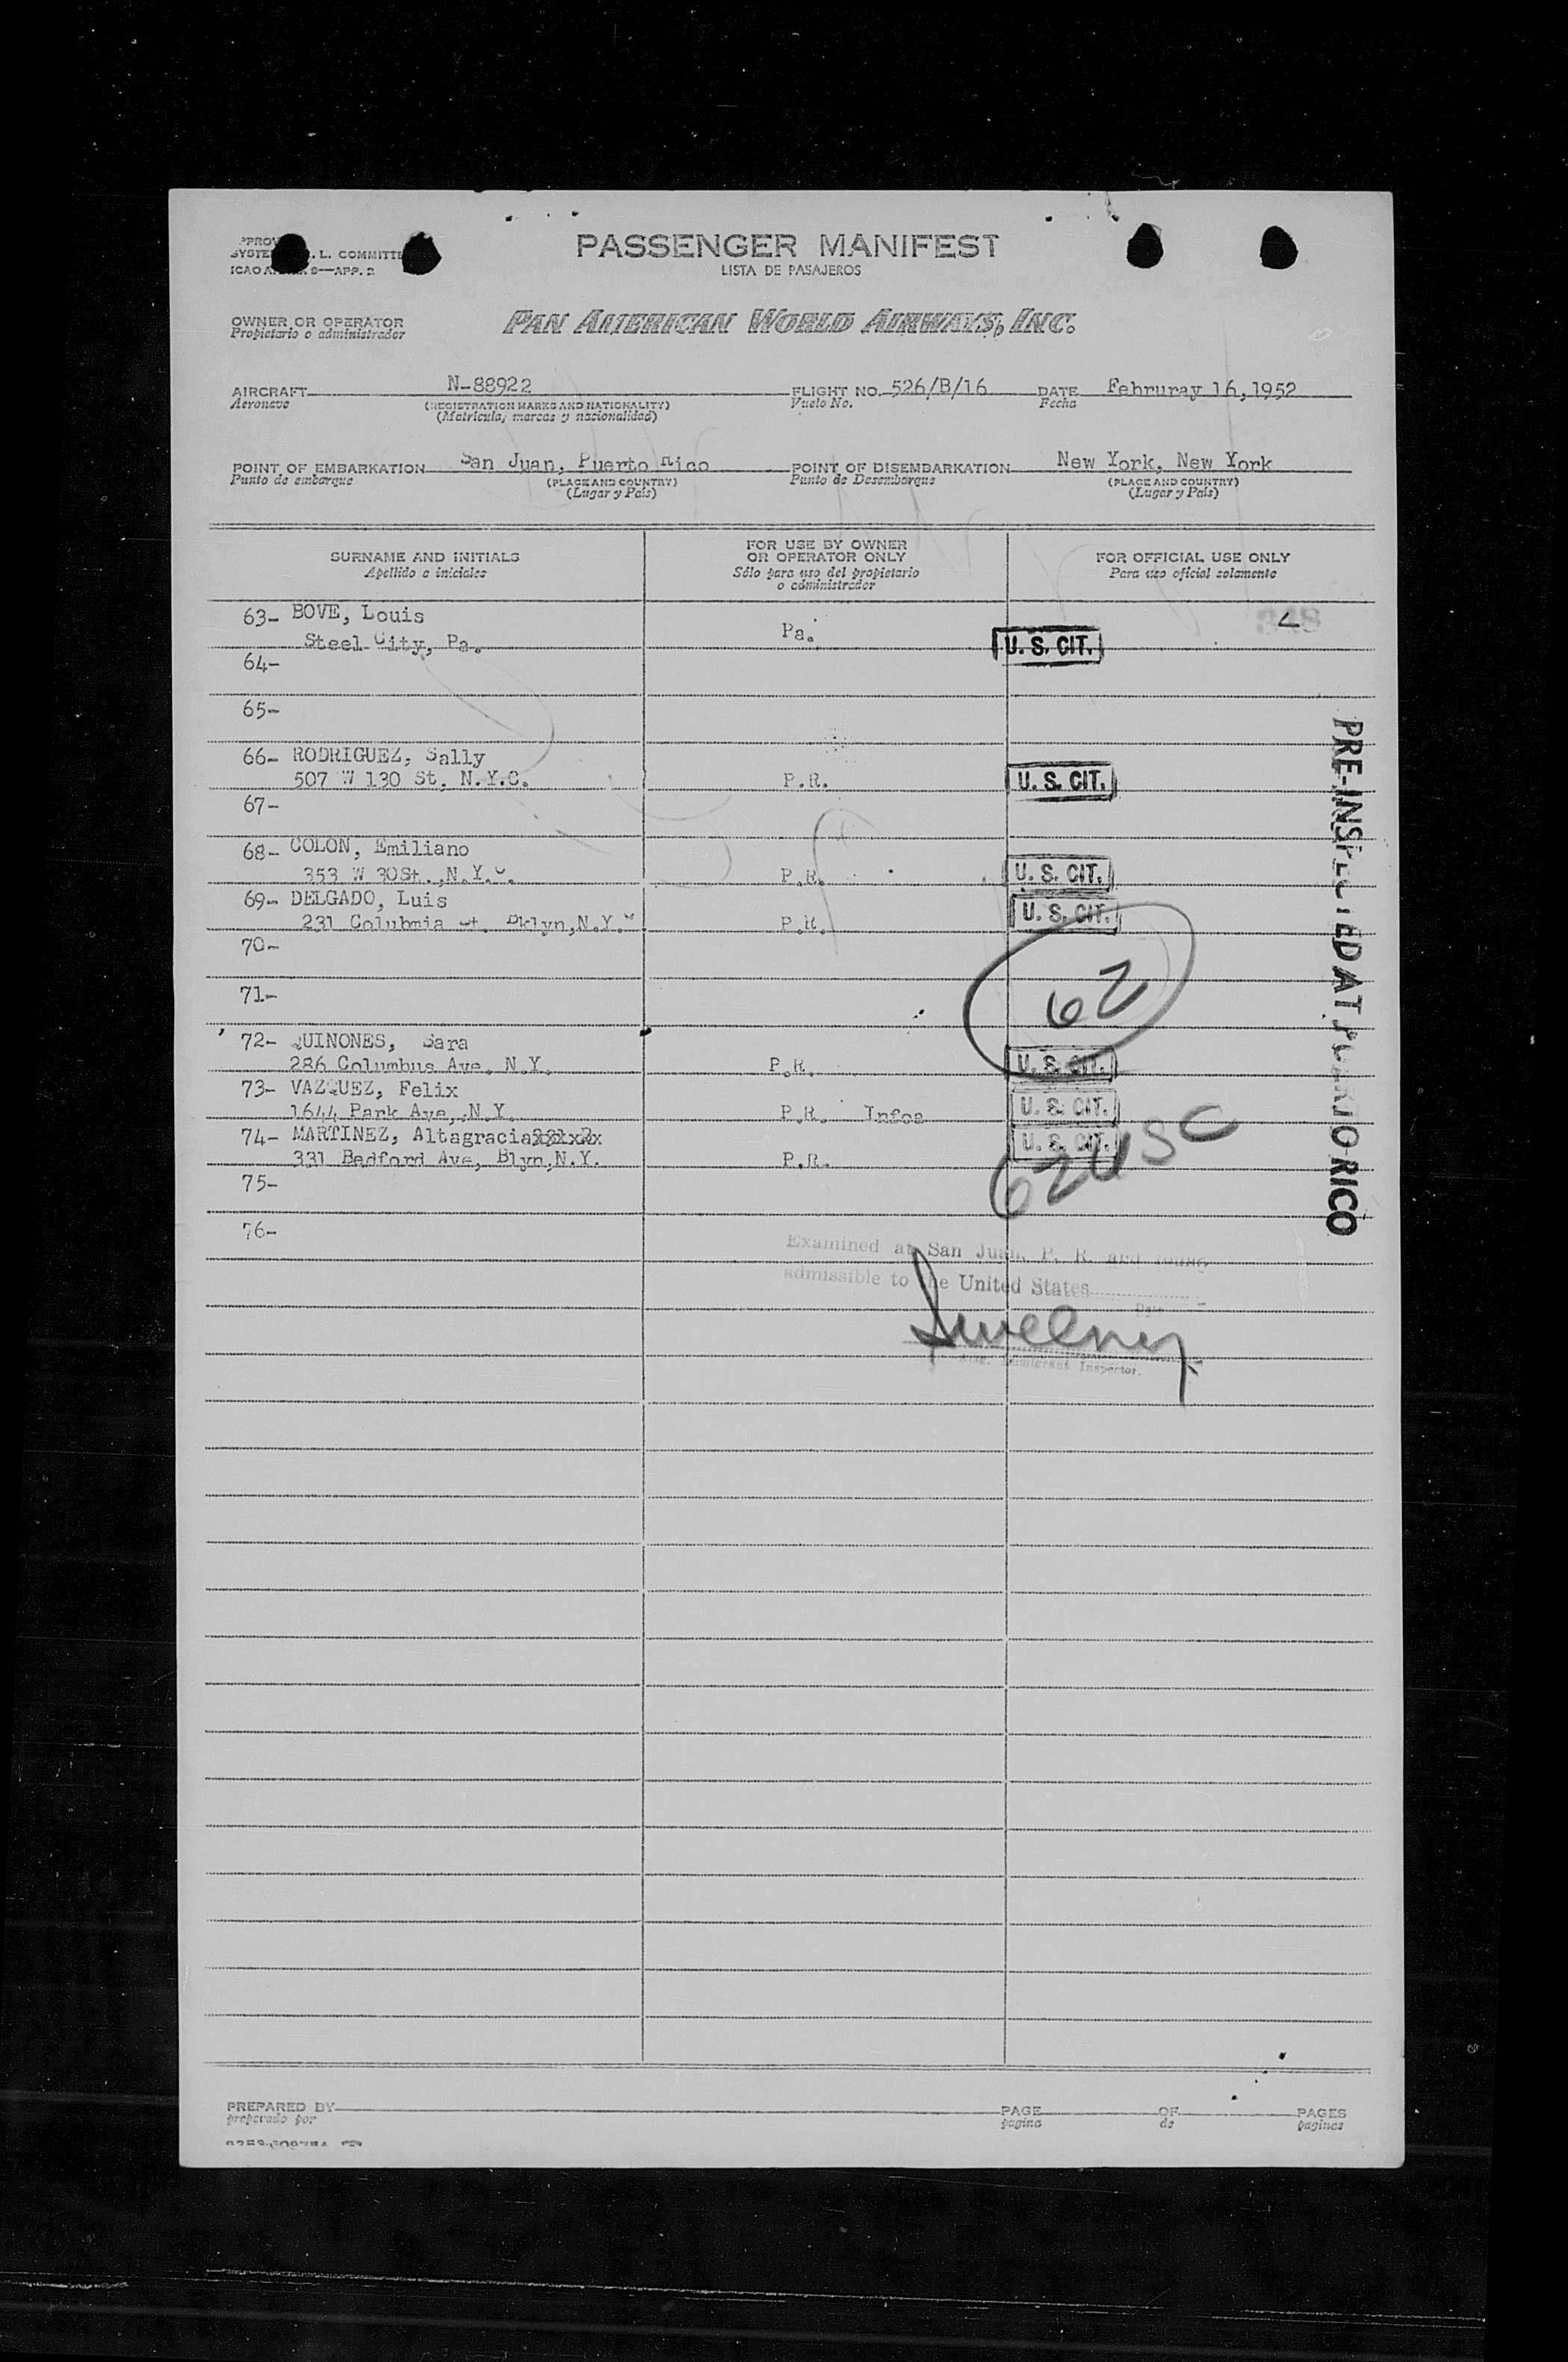 PASSENGER MANIFEST
LISTA DE PASAJEROS
L. COMMITTE
OWNER OR OPERATOR
Propietario o administrador
PAN AMERICAN WORLD AIRWAYS, INC.
AIRCRAFT N-88922 FLIGHT NO. 526/B/16 DATE Februray 16,1952
Aeronave (REGISTRATION MARKS AND NATIONALITY) Vuelo No. Fecha
(Matricula, marcas y nacionalidad)
POINT OF EMBARKATION San Juan, Puerto Rico POINT OF DISEMBARKATION New York, New York
Punto de embarque (PLACE AND COUNTRY) Punto de Desembarque (PLACE AND COUNTRY)
(Lugar y País) (Lugar y País)
SURNAME AND INITIALS FOR USE BY OWNER OR OPERATOR ONLY FOR OFFICIAL USE ONLY
Apellido e iniciales Sólo para uso del propietario o administrador Para uso oficial solamente
63- BOVE, Louis
Steel City, Pa. Pa. U. S. CIT.
64-
65-
66- RODRIGUEZ, Sally
507 W 130 St, N.Y.C. P.R. U. S. CIT.
67-
68- COLON, Emiliano
353 W 30St.,N.Y.C. P.R. U. S. CIT.
69- DELGADO, Luis
231 Colubmia St. Bklyn,N.Y. P.R. U. S. CIT.
70-
71-
62
72- QUINONES, Sara
286 Columbus Ave, N.Y. P.R. U. S. CIT.
73- VAZQUEZ, Felix
1644 Park Ave, N.Y. P.R. Infos U. S. CIT.
74- MARTINEZ, Altagracia
331 Bedford Ave, Blyn,N.Y. P.R. U. S. CIT.
62 USC
75-
76-
PRE-INSPECTED AT PUERTO RICO
Examined at San Juan, P. R. and found
admissible to the United States
Date
Sweeney
Immigrant Inspector.
PREPARED BY PAGE OF PAGES
preparado por pagina de paginas